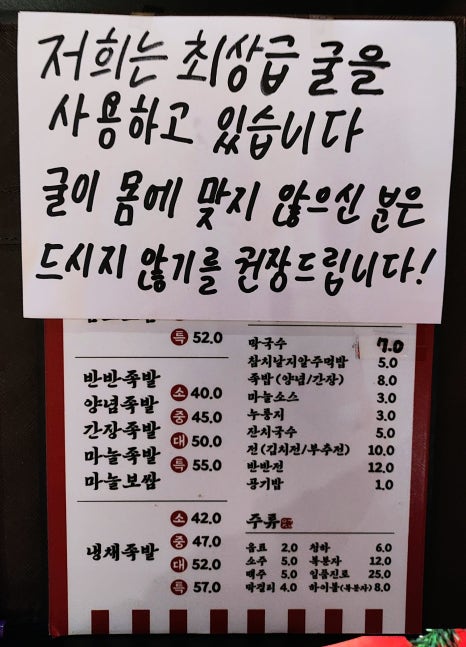 저희는 최상급 굴을
사용하고 있습니다
굴이 몸에 맞지 않으신 분은
드시지 않기를 권장드립니다!
특 52.0
반반족발
양념족발
간장족발
마늘족발
마늘보쌈
소 40.0
중 45.0
대 50.0
특 55.0
냉채족발
소 42.0
중 47.0
대 52.0
특 57.0
막국수 7.0
참치날치알주먹밥 5.0
족밥(양념/간장) 8.0
마늘소스 3.0
누룽지 3.0
잔치국수 5.0
전(김치전/부추전) 10.0
반반전 12.0
공기밥 1.0
주류
음료 2.0 청하 6.0
소주 5.0 복분자 12.0
맥주 5.0 일품진로 25.0
막걸리 4.0 하이볼(복분자) 8.0